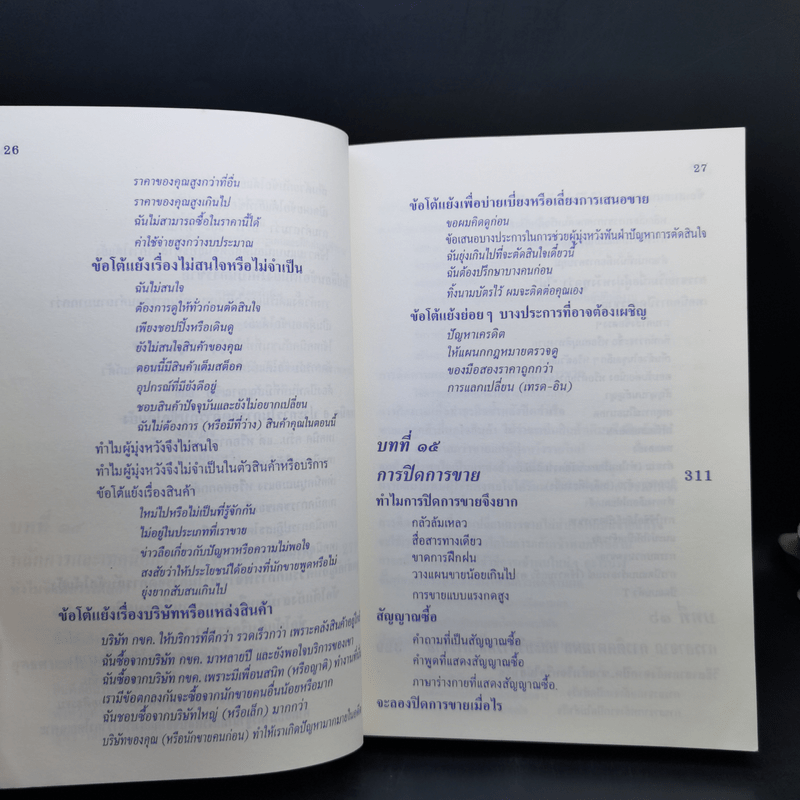 26
ราคาของคุณสูงกว่าที่อื่น
ราคาของคุณสูงเกินไป
ฉันไม่สามารถซื้อในราคานี้ได้
ค่าใช้จ่ายสูงกว่างบประมาณ
ข้อโต้แย้งเรื่องไม่สนใจหรือไม่จำเป็น
ฉันไม่สนใจ
ต้องการดูให้ทั่วก่อนตัดสินใจ
เพียงชอปปิ้งหรือเดินดู
ยังไม่สนใจสินค้าของคุณ
ตอนนี้มีสินค้าเต็มสต็อค
อุปกรณ์ที่มียังดีอยู่
ชอบสินค้าปัจจุบันและยังไม่อยากเปลี่ยน
ฉันไม่ต้องการ (หรือมีที่ว่าง) สินค้าคุณในตอนนี้
ทำไมผู้มุ่งหวังจึงไม่สนใจ
ทำไมผู้มุ่งหวังจึงไม่จำเป็นในตัวสินค้าหรือบริการ
ข้อโต้แย้งเรื่องสินค้า
ใหม่ไปหรือไม่เป็นที่รู้จักกัน
ไม่อยู่ในประเภทที่เราขาย
ข่าวลือเกี่ยวกับปัญหาหรือความไม่พอใจ
สงสัยว่าให้ประโยชน์ได้อย่างที่นักขายพูดหรือไม่
ยุ่งยากสับสนเกินไป
ข้อโต้แย้งเรื่องบริษัทหรือแหล่งสินค้า
บริษัท กขค. ให้บริการที่ดีกว่า รวดเร็วกว่า เพราะคลังสินค้าอยู่ใกล้
ฉันซื้อจากบริษัท กขค. มาหลายปี และยังพอใจบริการของเขา
ฉันซื้อจากบริษัท กขค. เพราะมีเพื่อนสนิท (หรือญาติ) ทำงานที่นั่น
เรามีข้อตกลงกันจะซื้อจากนักขายคนอื่นน้อยหรือมาก
ฉันชอบซื้อจากบริษัทใหญ่ (หรือเล็ก) มากกว่า
บริษัทของคุณ (หรือนักขายคนก่อน) ทำให้เราเกิดปัญหามากมายใน
27
ข้อโต้แย้งเพื่อบ่ายเบี่ยงหรือเลี่ยงการเสนอขาย
ขอผมคิดดูก่อน
ข้อเสนอบางประการในการช่วยผู้มุ่งหวังฟันฝ่าปัญหาการตัดสินใจ
ฉันยุ่งเกินไปที่จะตัดสินใจเดี๋ยวนี้
ฉันต้องปรึกษาบางคนก่อน
ทิ้งนามบัตรไว้ ผมจะติดต่อคุณเอง
ข้อโต้แย้งย่อยๆ บางประการที่อาจต้องเผชิญ
ปัญหาเครดิต
ให้แผนกกฎหมายตรวจดู
ของมือสองราคาถูกกว่า
การแลกเปลี่ยน (เทรด-อิน)
บทที่ ๑๕
การปิดการขาย 311
ทำไมการปิดการขายจึงยาก
กลัวล้มเหลว
สื่อสารทางเดียว
ขาดการฝึกฝน
วางแผนขายน้อยเกินไป
การขายแบบแรงกดสูง
สัญญาณซื้อ
คำถามที่เป็นสัญญาณซื้อ
คำพูดที่แสดงสัญญาณซื้อ
ภาษาร่างกายที่แสดงสัญญาณซื้อ.
จะลองปิดการขายเมื่อไร